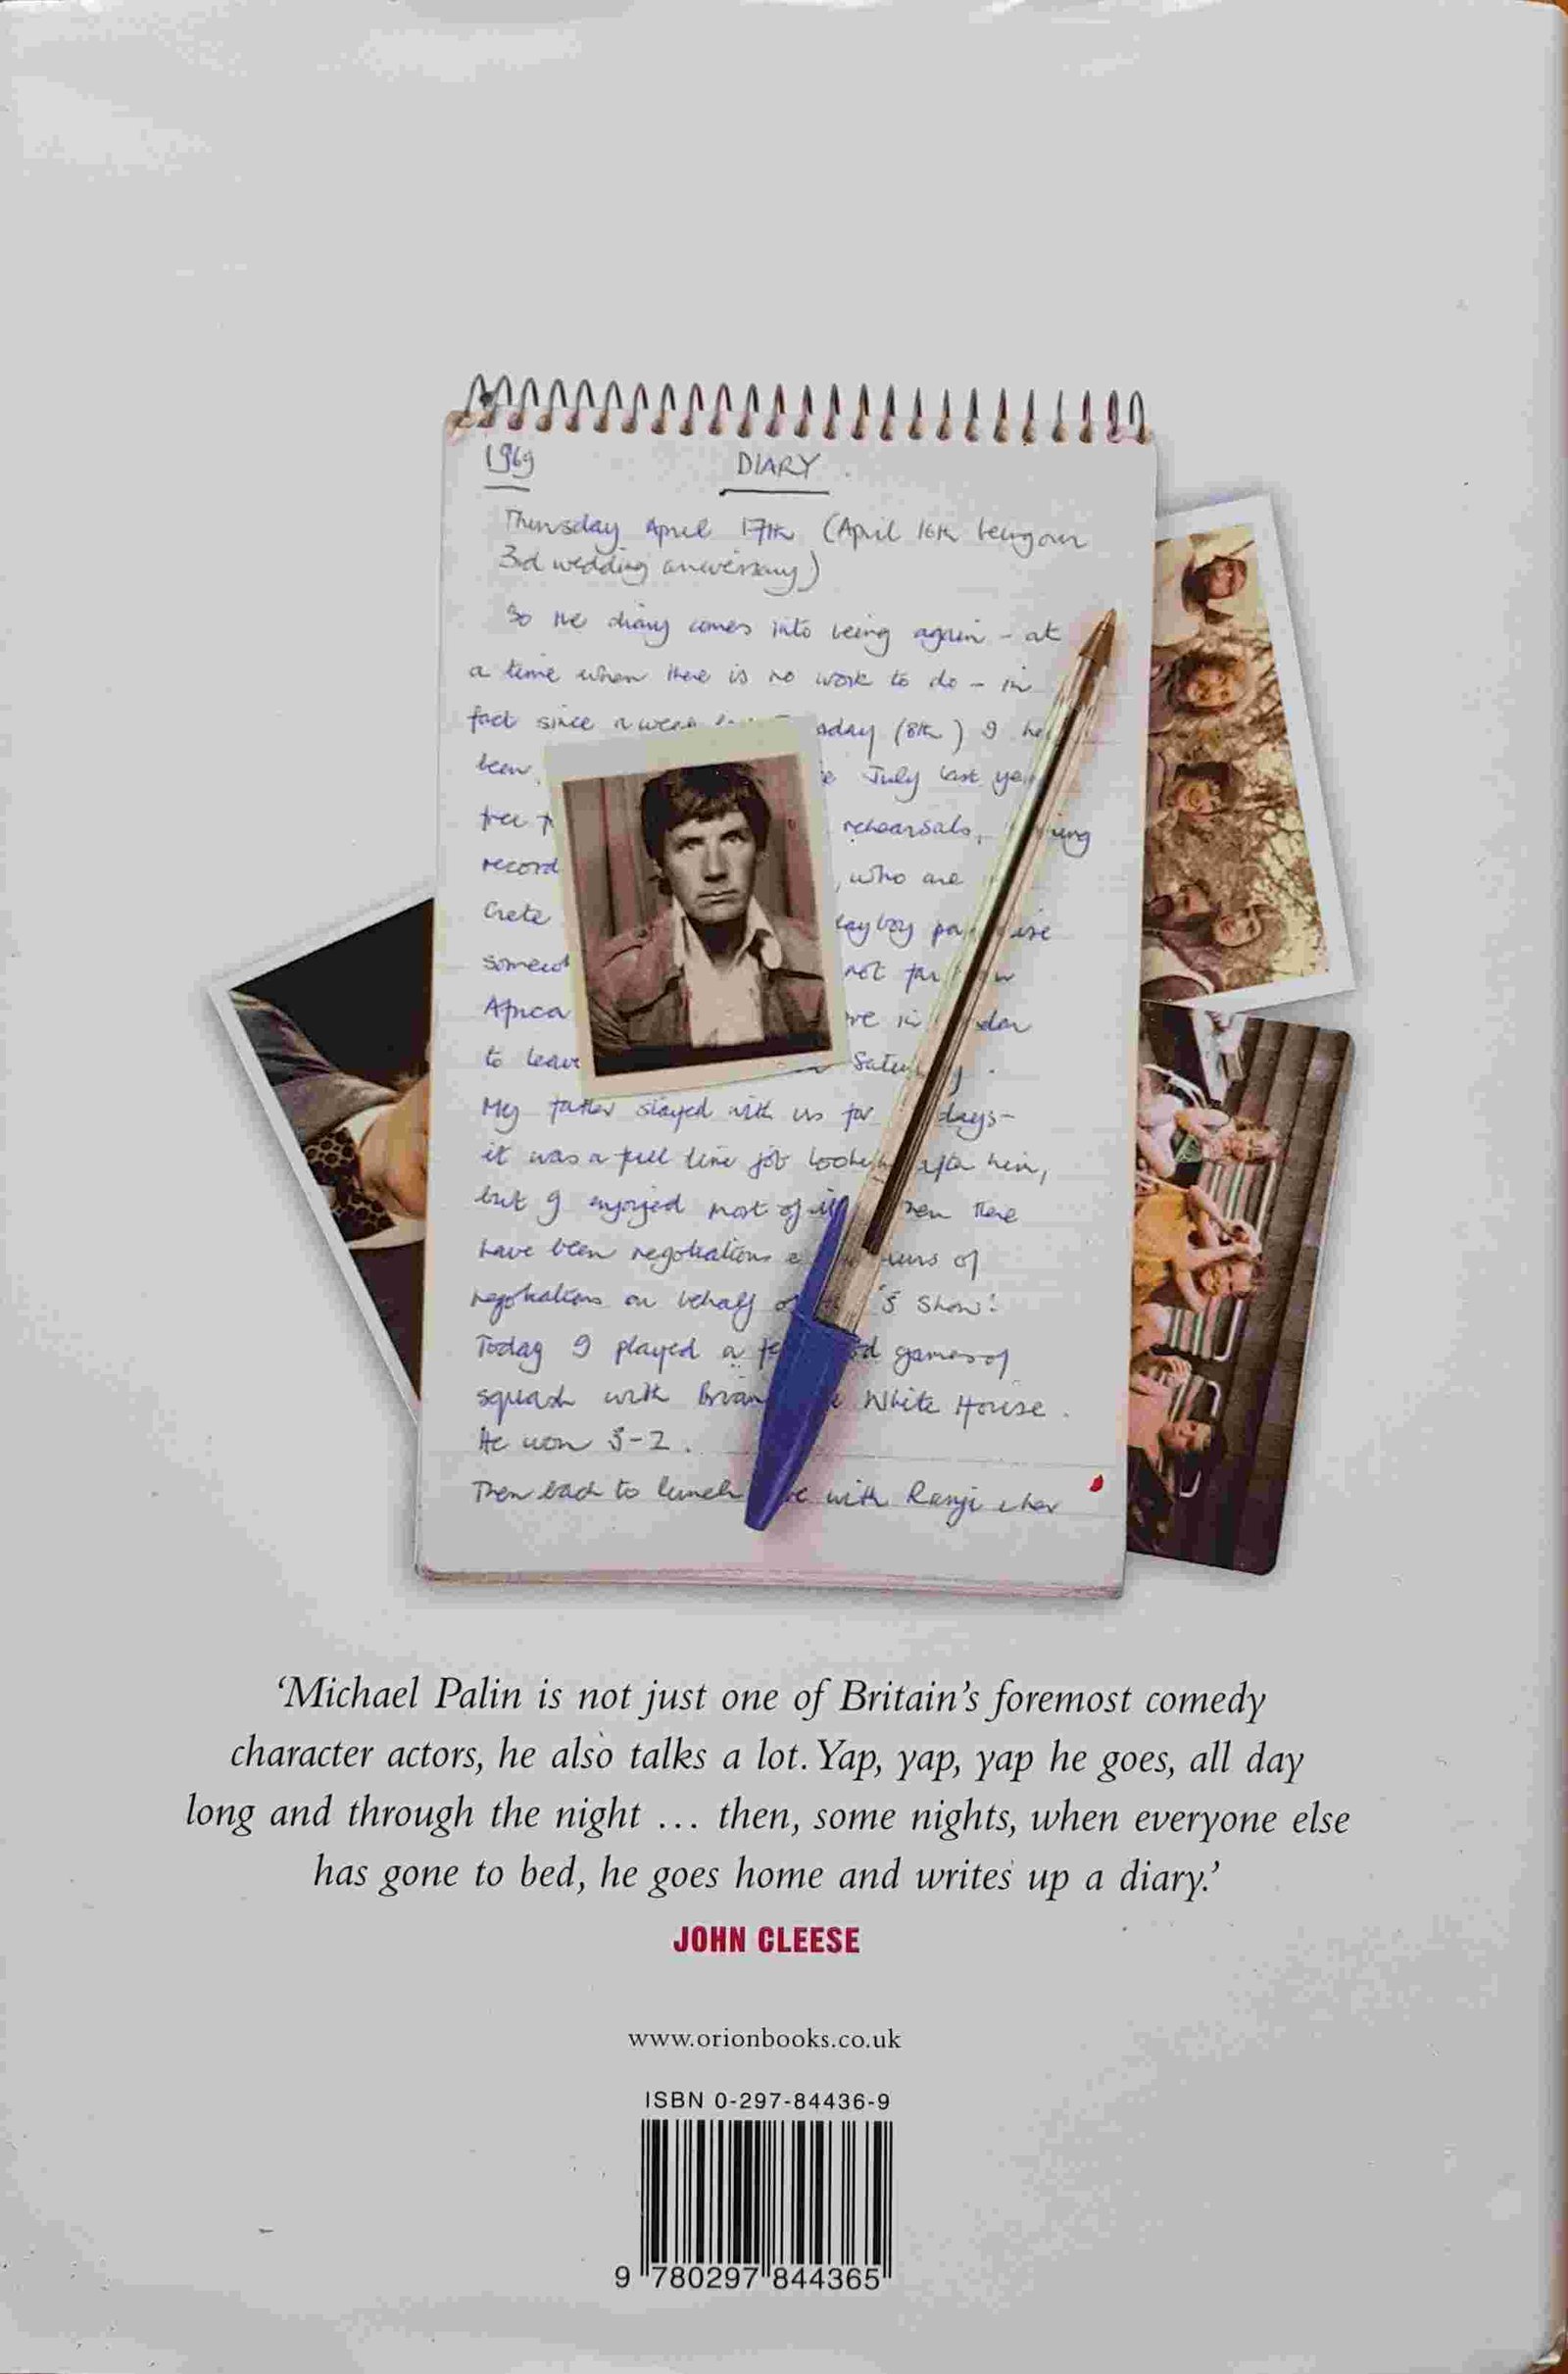 1969 DIARY.
Thursday April 17th (April 16th being our
3rd wedding anniversary)
So the diary comes into being again - at
a time when there is no work to do - in
fact since a week sday (8th) I
been July last
free rehearsals,
record , who are
Crete
not far
Africa in
to leave
My father stayed with us for days-
it was a full time job after him,
but I enjoyed most of there
have been negotiations of
negotiations on behalf 's Show'.
Today I played a games of
squash with Brian White House.
He won 3-2.
Then back to lunch with Ranji
'Michael Palin is not just one of Britain's foremost comedy
character actors, he also talks a lot. Yap, yap, yap he goes, all day
long and through the night … then, some nights, when everyone else
has gone to bed, he goes home and writes up a diary.'
JOHN CLEESE
www.orionbooks.co.uk
ISBN 0-297-84436-9
9 780297 844365